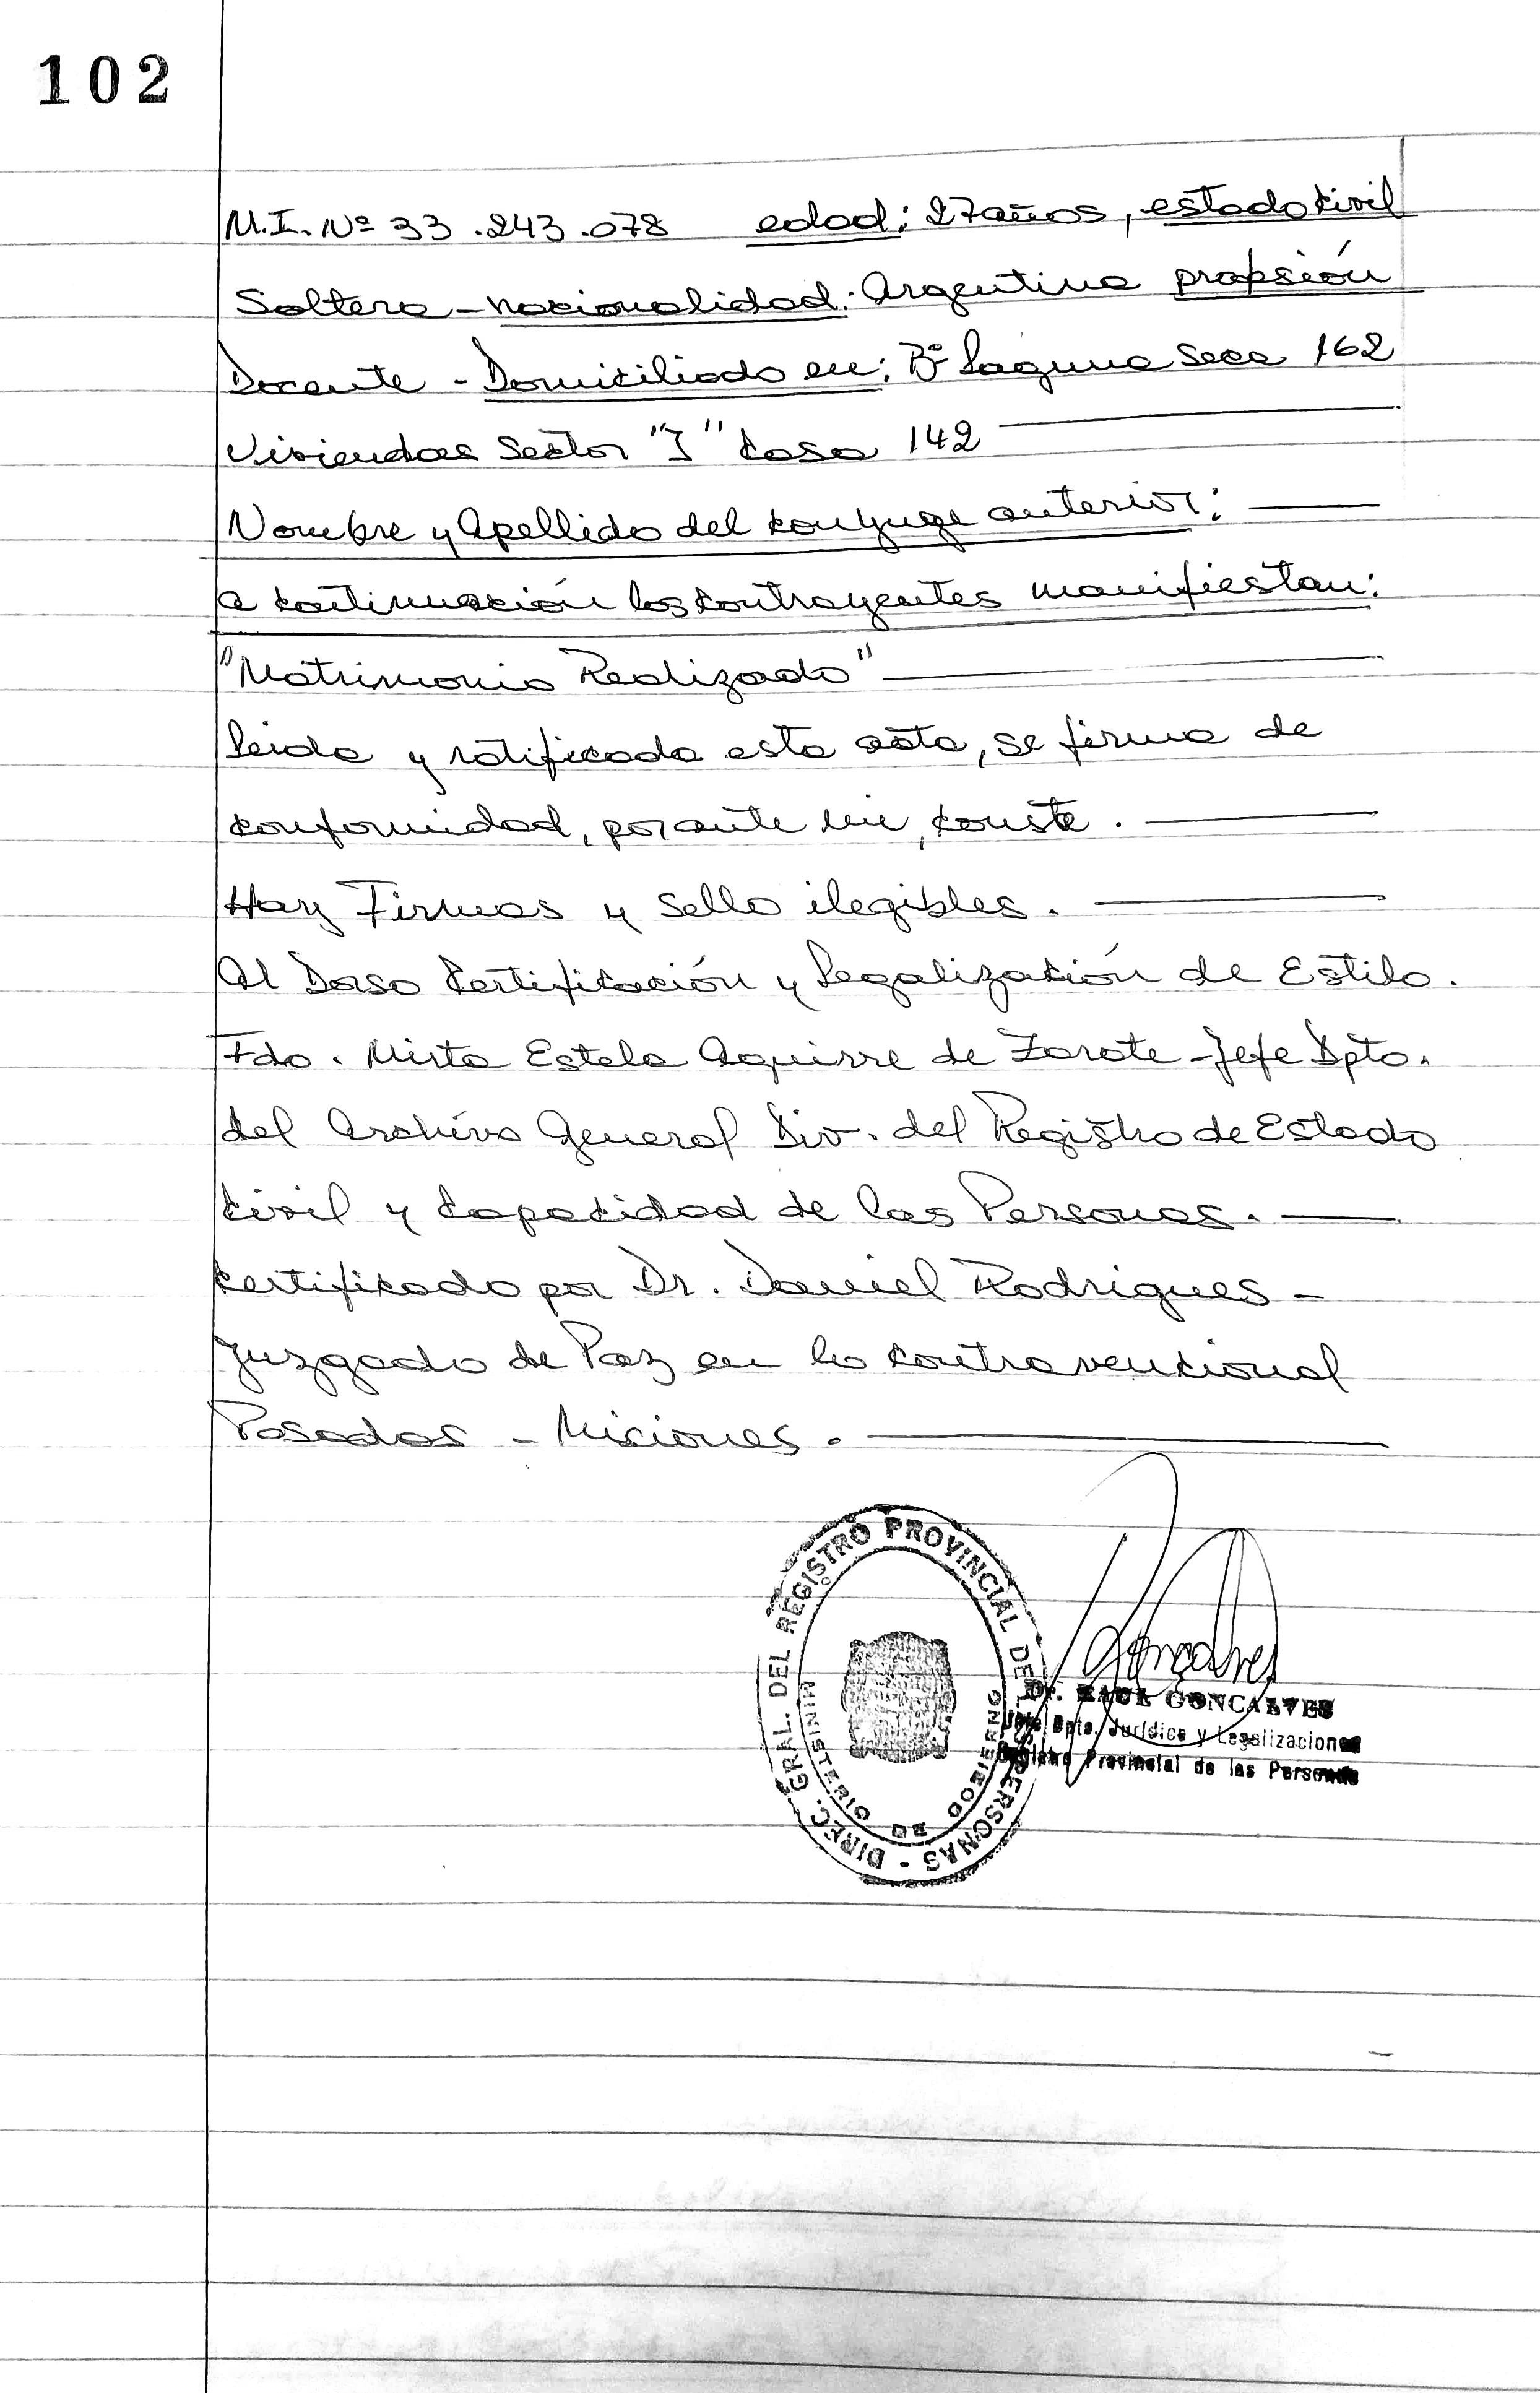 102
M.I. Nº 33.243.078 edad: 27 años, estado Civil
Soltera - nacionalidad: Argentina profesión
Docente - Domiciliado en: Bº Laguna Seca 162
Viviendas Sector "I" Casa 142
Nombre y Apellido del Conyuge anterior:
a Continuación los Contrayentes manifiestan:
"Matrimonio Realizado"
Leida y ratificada esta acta, se firma de
Conformidad, por ante mi, Conste.
Hay Firmas y Sello ilegibles.
Al Dorso Certificación y Legalización de Estilo.
Fdo. Mirta Estela Aguirre de Zarate - Jefe Dpto.
del Archivo General Div. del Registro de Estado
Civil y Capacidad de las Personas.
Certificado por Dr. Daniel Rodrigues -
Juzgado de Paz en lo Contravencional
Posadas - Misiones.
DIREC. GRAL. DEL REGISTRO PROVINCIAL DE LAS PERSONAS -
MINISTERIO DE GOBIERNO
Goncalves
Dr. RAUL GONCALVES
Jefe Dpto. Jurídico y Legalizaciones
Registro Provincial de las Personas